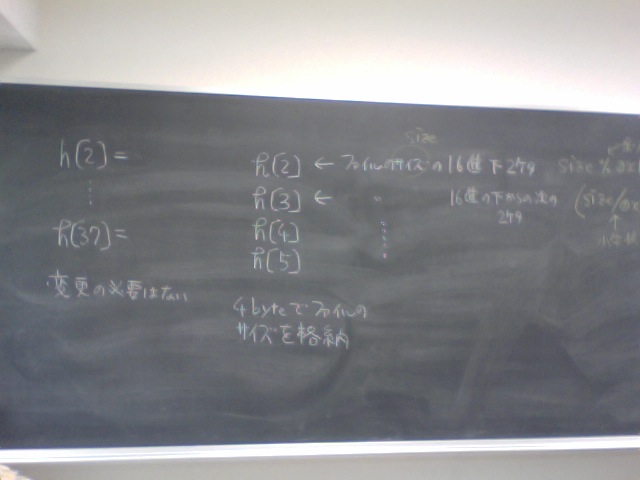 h[2] =
⋮
h[37] =
変更の必要はない
size
h[2] ← ファイルのサイズの 16進 下2ケタ size %
h[3] ← 〃 16進の下からの次の (size/
2ケタ
h[4]
h[5]
4byteでファイルの
サイズを格納